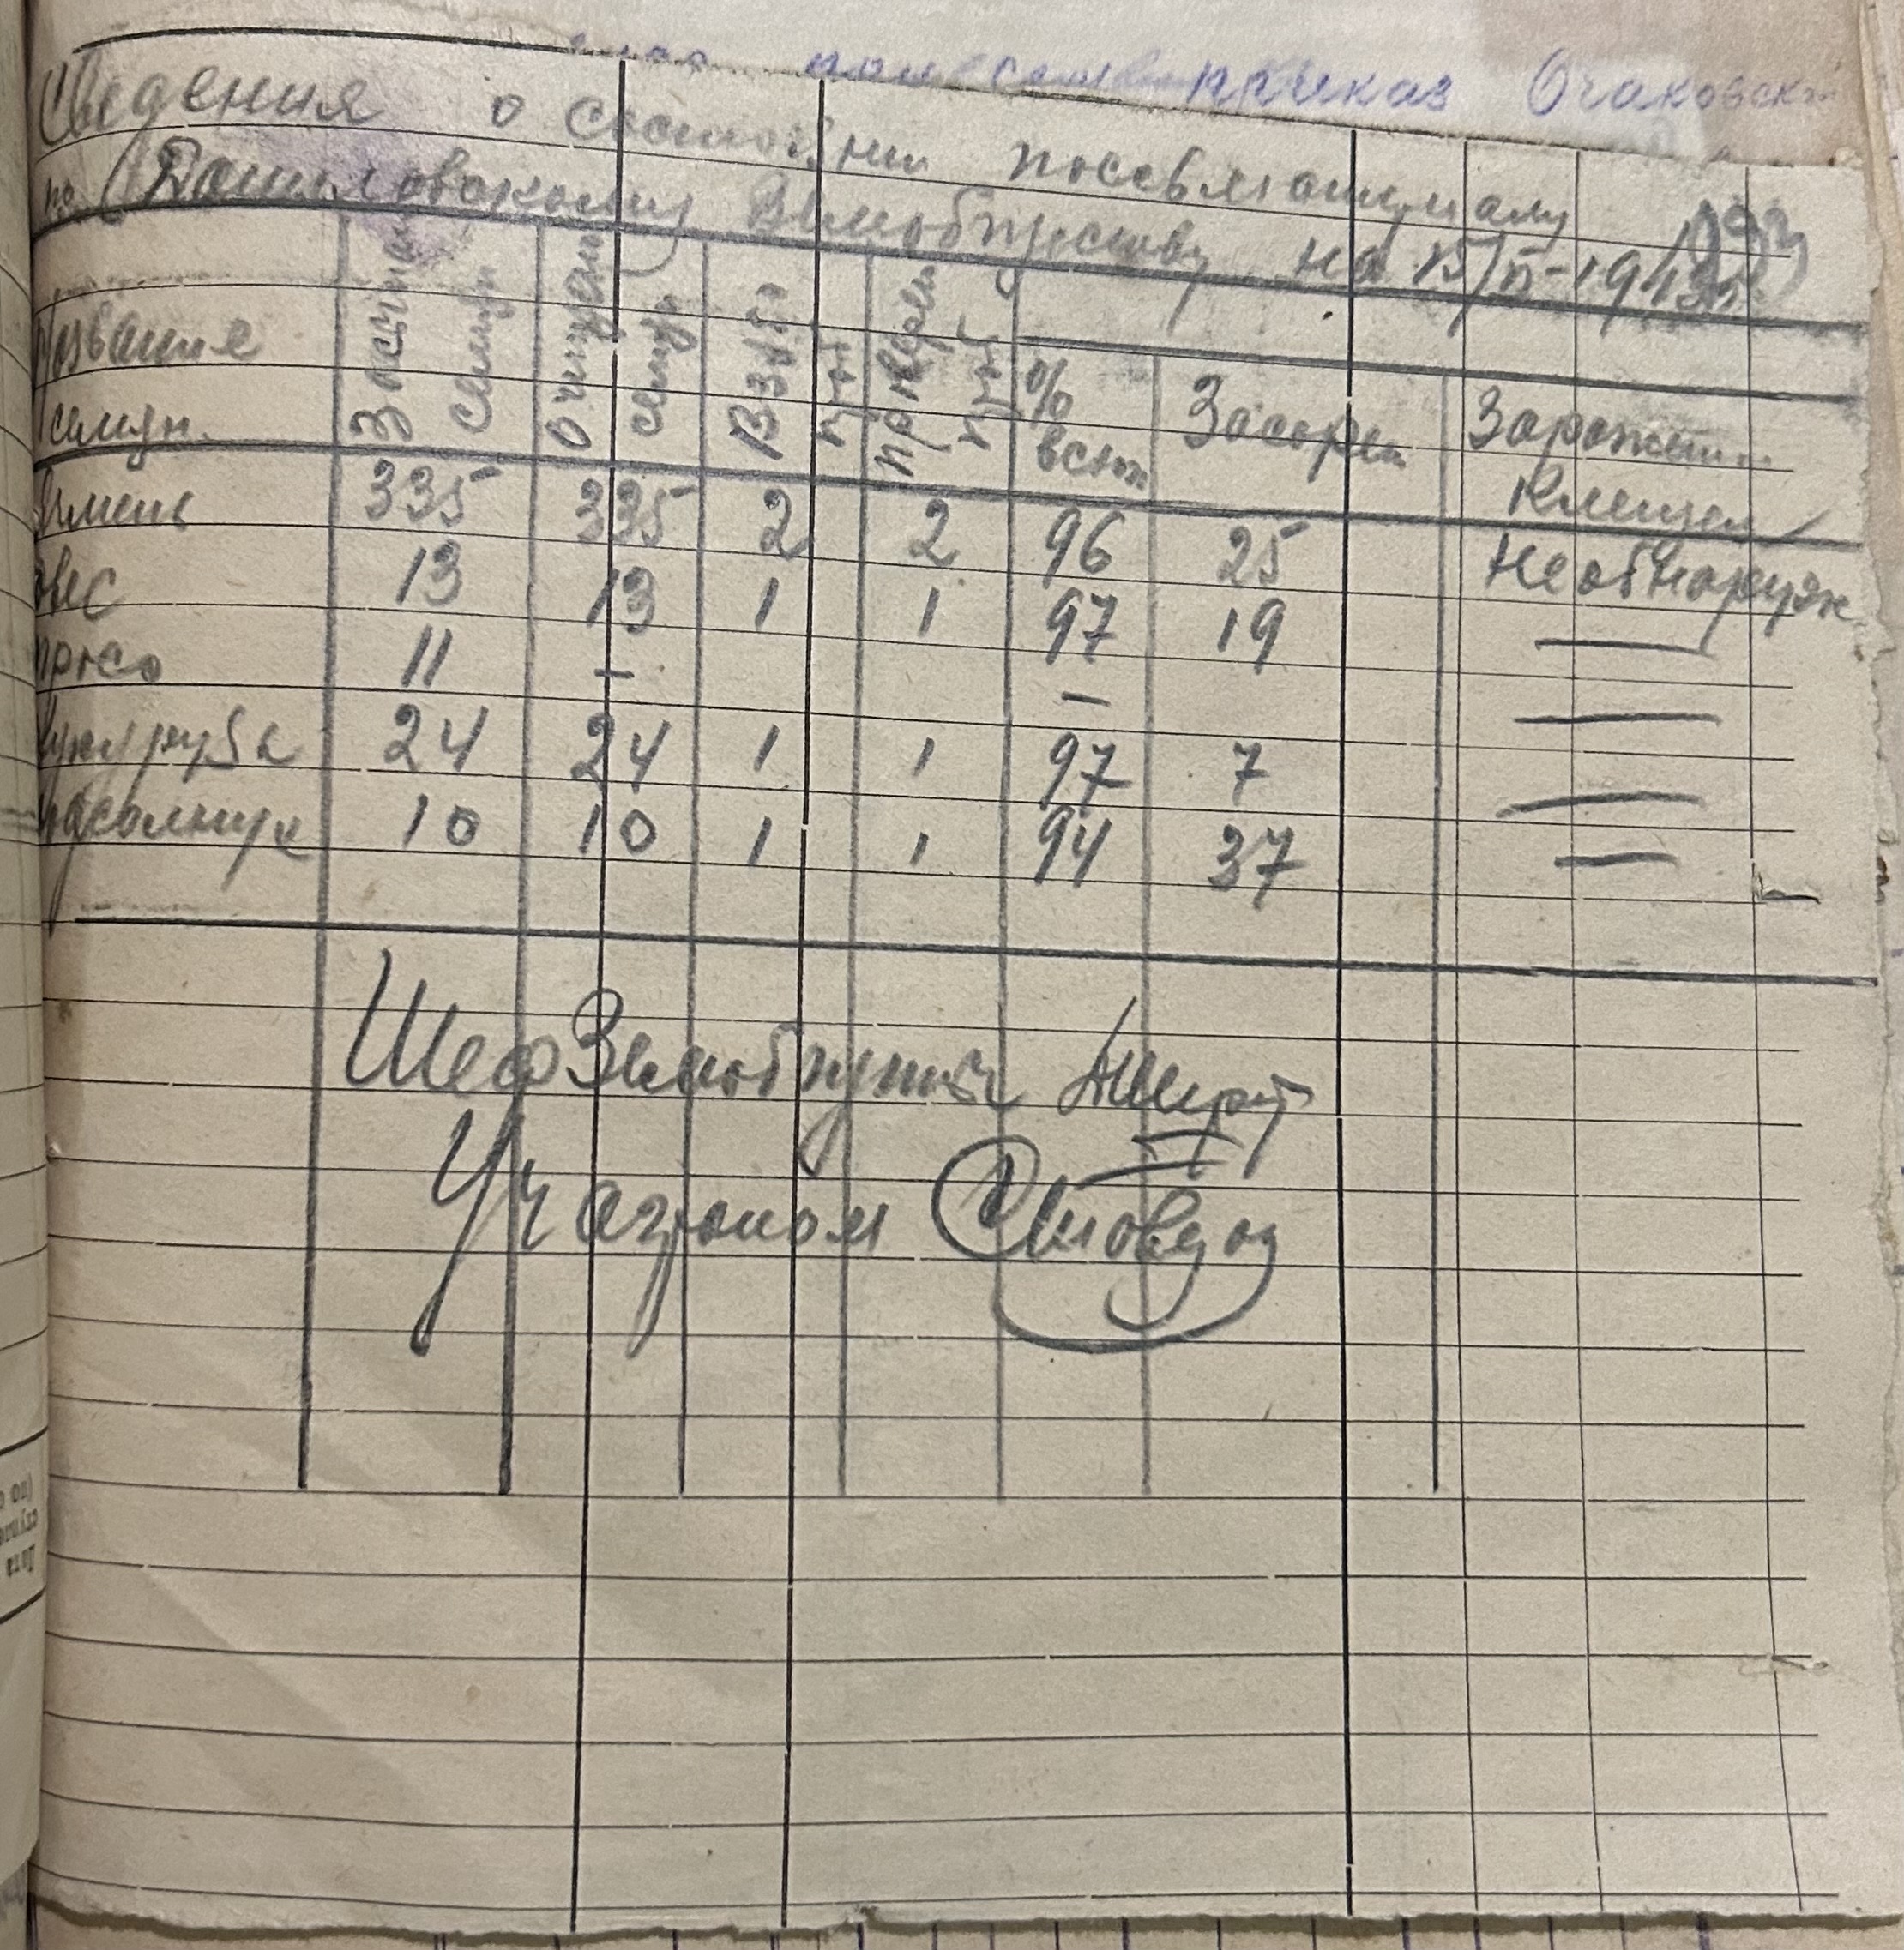 приказ Очаковск
Сведения о состоянии посевматериалу
по Даниловскому Земобществу на 15/II-1943 г.
Название семян.
Засыпано семян
Очищено семян
Взято проб
Проверен проб
% всхож
Засорен
Заражен клещем
Ячмень 335 335 2 2 96 25 Необнаруж
Овес 13 13 1 1 97 19 —
просо 11 — — —
Кукуруза 24 24 1 1 97 7 —
Подсолнух 10 10 1 1 94 37 —
Шеф Земобщины
Уч агроном